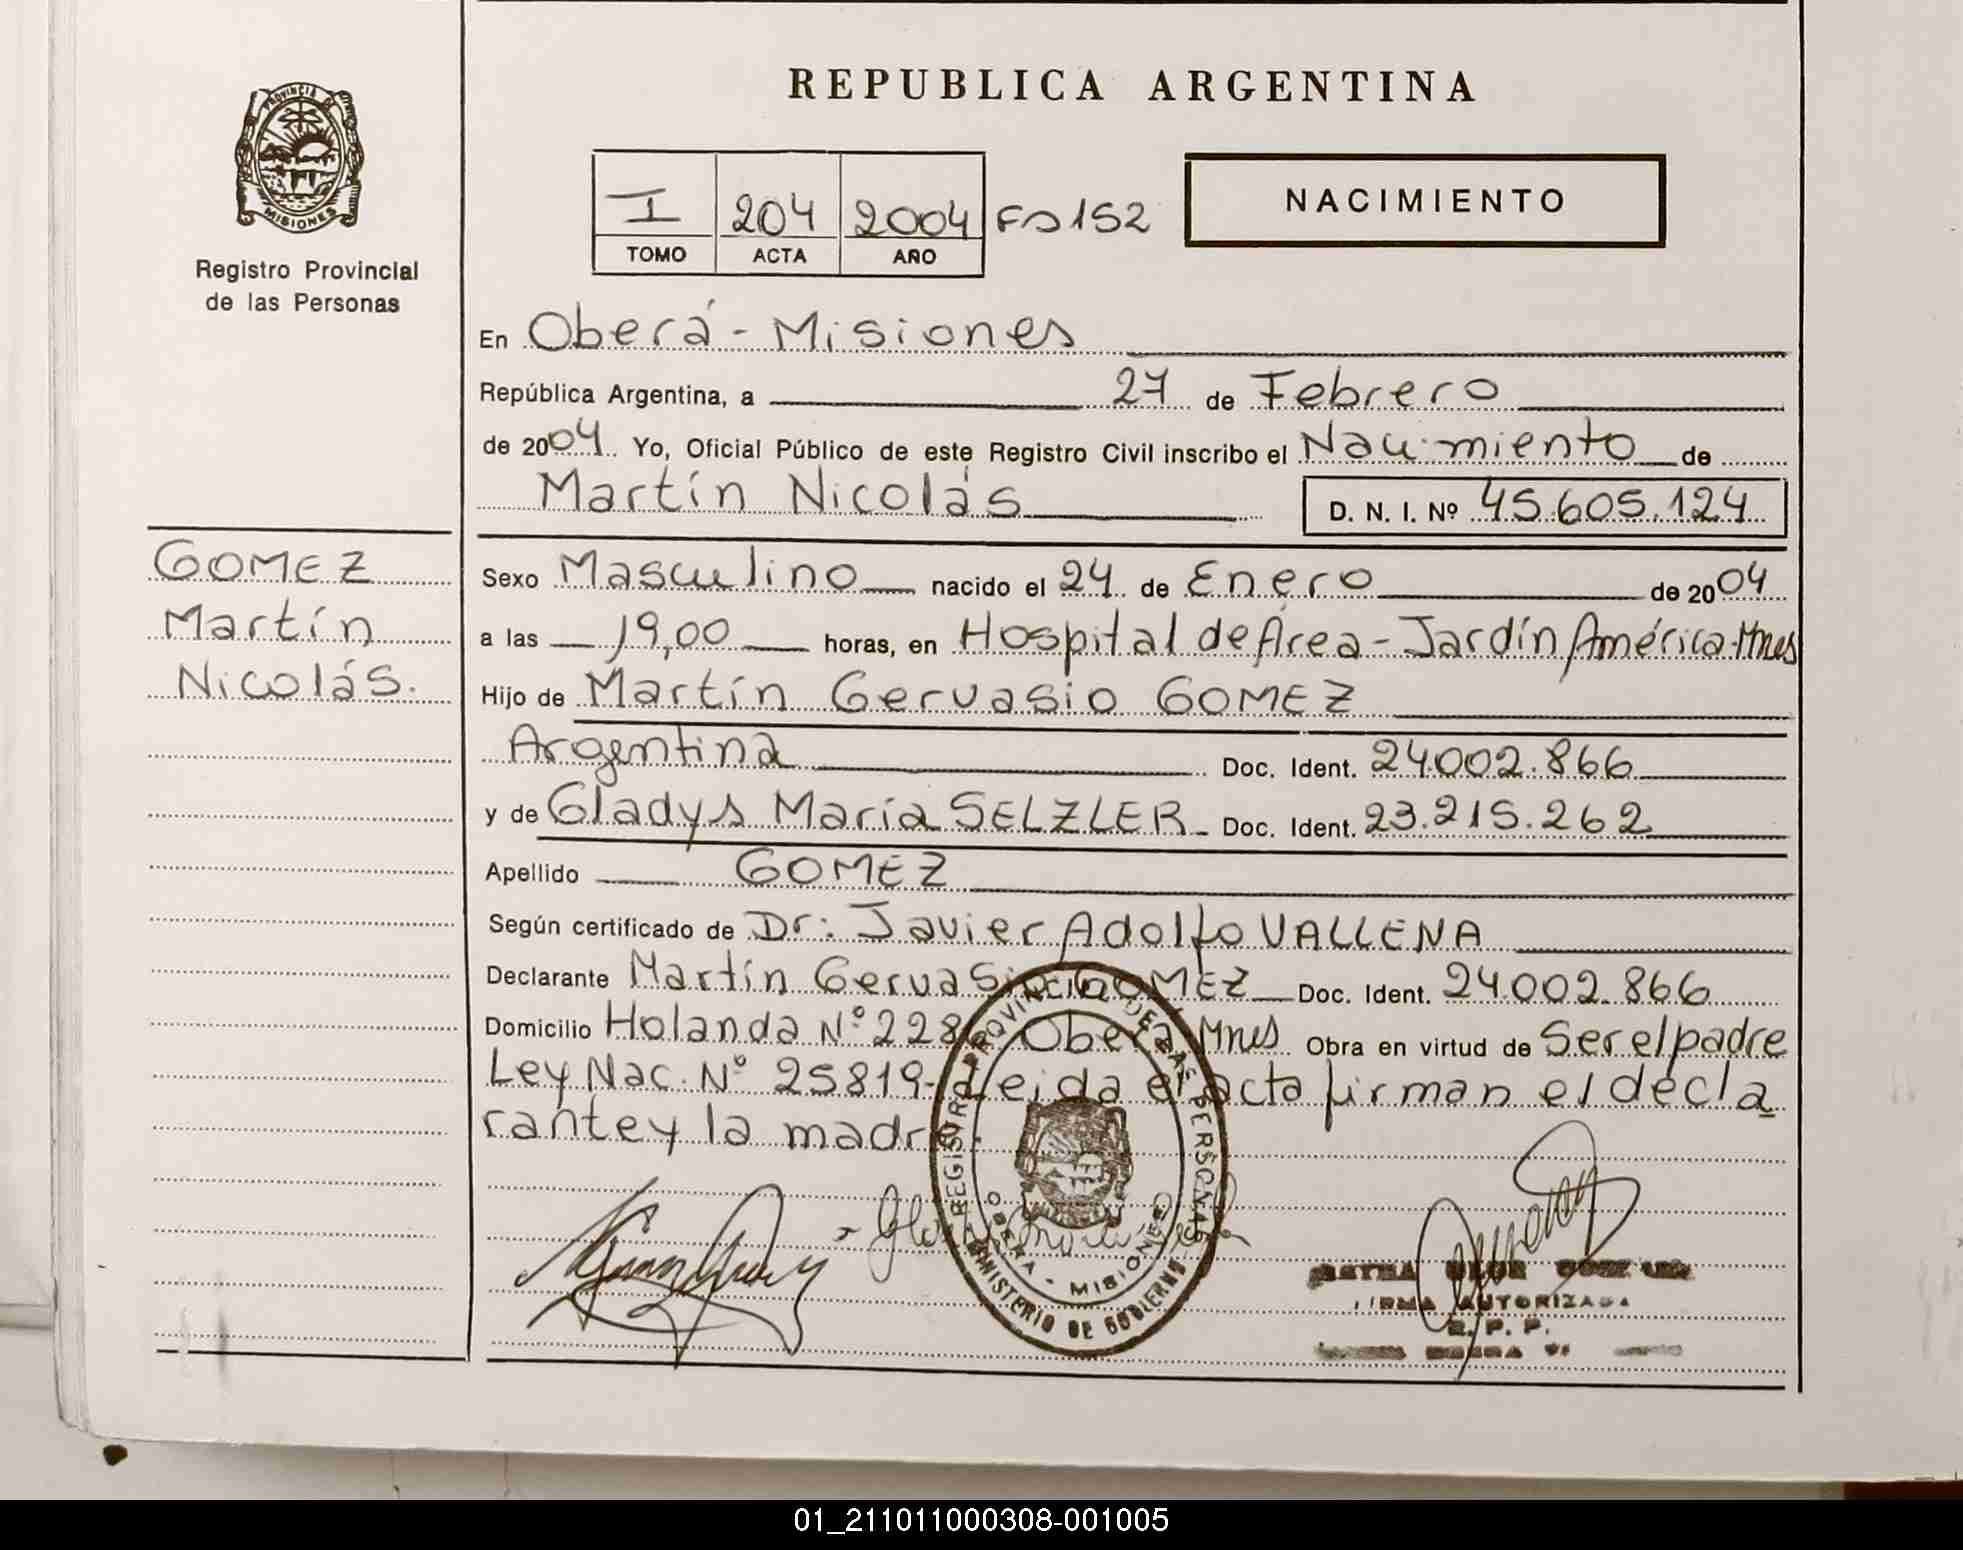 REPUBLICA ARGENTINA
PROVINCIA DE
MISIONES
Registro Provincial
de las Personas
I 204 2004 Fo 152
TOMO ACTA AÑO
NACIMIENTO
En Oberá - Misiones
República Argentina, a 27 de Febrero
de 2004. Yo, Oficial Público de este Registro Civil inscribo el Nacimiento de
Martín Nicolás D. N. I. Nº 45.605.124
GOMEZ
Martín
Nicolás.
Sexo Masculino nacido el 24 de Enero de 2004
a las 19,00 horas, en Hospital de Área - Jardín América - Mnes
Hijo de Martín Gervasio GOMEZ
Argentina Doc. Ident. 24.002.866
y de Gladys María SELZLER - Doc. Ident. 23.215.262
Apellido GOMEZ
Según certificado de Dr: Javier Adolfo VALLENA
Declarante Martín Gervasio GOMEZ Doc. Ident. 24.002.866
Domicilio Holanda Nº 228 Oberá Mnes Obra en virtud de Ser el padre
Ley Nac. Nº 25819- Leida el acta firman el decla
rante y la madre
REGISTRO PROVINCIAL DE LAS PERSONAS
OBERA - MISIONES
MINISTERIO DE GOBIERNO
FIRMA AUTORIZADA
R. P. P.
01_211011000308-001005